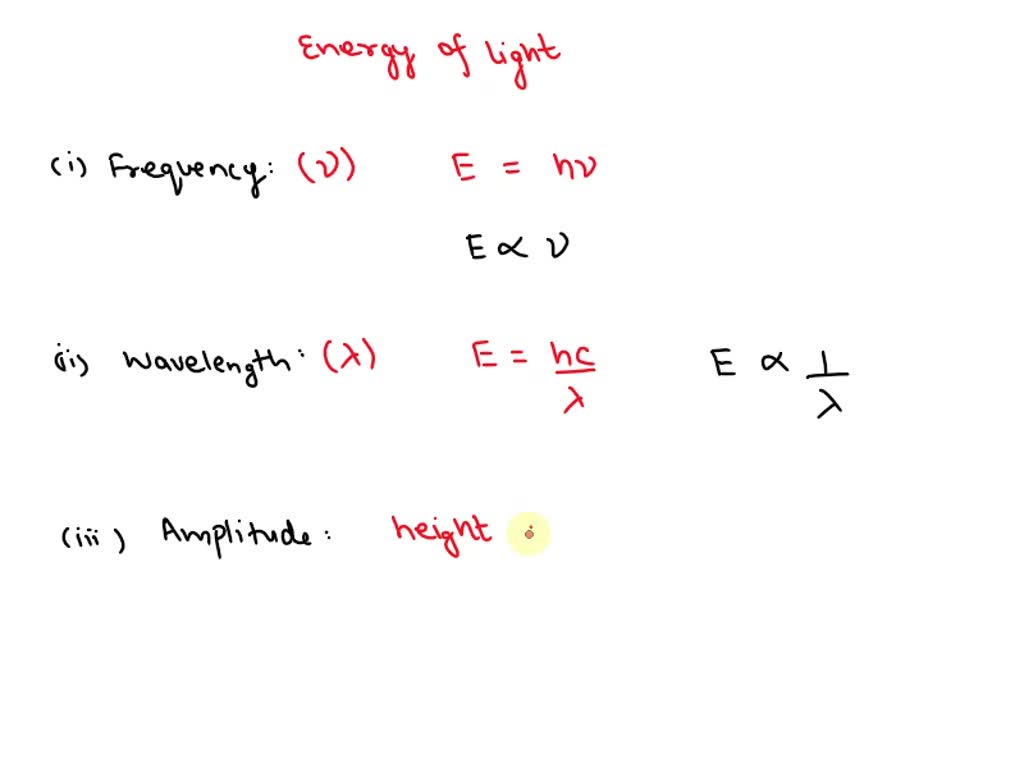 Energy of light
(i) Frequency: (ν) E = hν
E ∝ ν
(ii) Wavelength: (λ) E = hc/λ E ∝ 1/λ
(iii) Amplitude: height